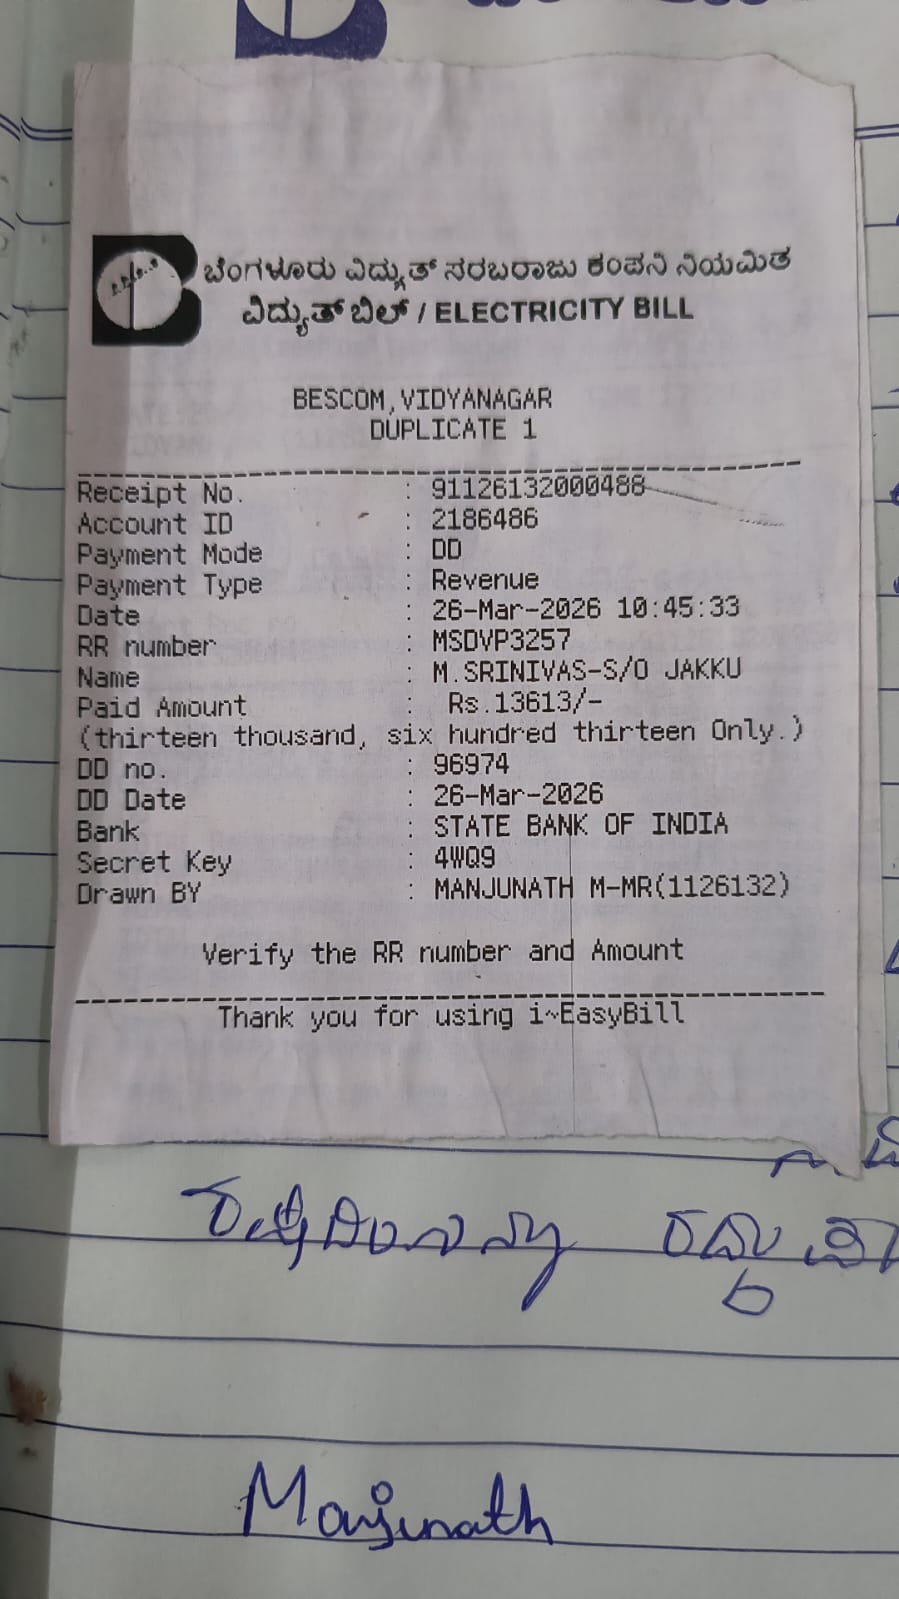 ಬೆಂಗಳೂರು ವಿದ್ಯುತ್ ಸರಬರಾಜು ಕಂಪನಿ ನಿಯಮಿತ
ವಿದ್ಯುತ್ ಬಿಲ್ / ELECTRICITY BILL
BESCOM,VIDYANAGAR
DUPLICATE 1
Receipt No. : 91126132000488
Account ID : 2186486
Payment Mode : DD
Payment Type : Revenue
Date : 26-Mar-2026 10:45:33
RR number : MSDVP3257
Name : M.SRINIVAS-S/O JAKKU
Paid Amount : Rs.13613/-
(thirteen thousand, six hundred thirteen Only.)
DD no. : 96974
DD Date : 26-Mar-2026
Bank : STATE BANK OF INDIA
Secret Key : 4WQ9
Drawn BY : MANJUNATH M-MR(1126132)
Verify the RR number and Amount
Thank you for using i~EasyBill
Manjunath